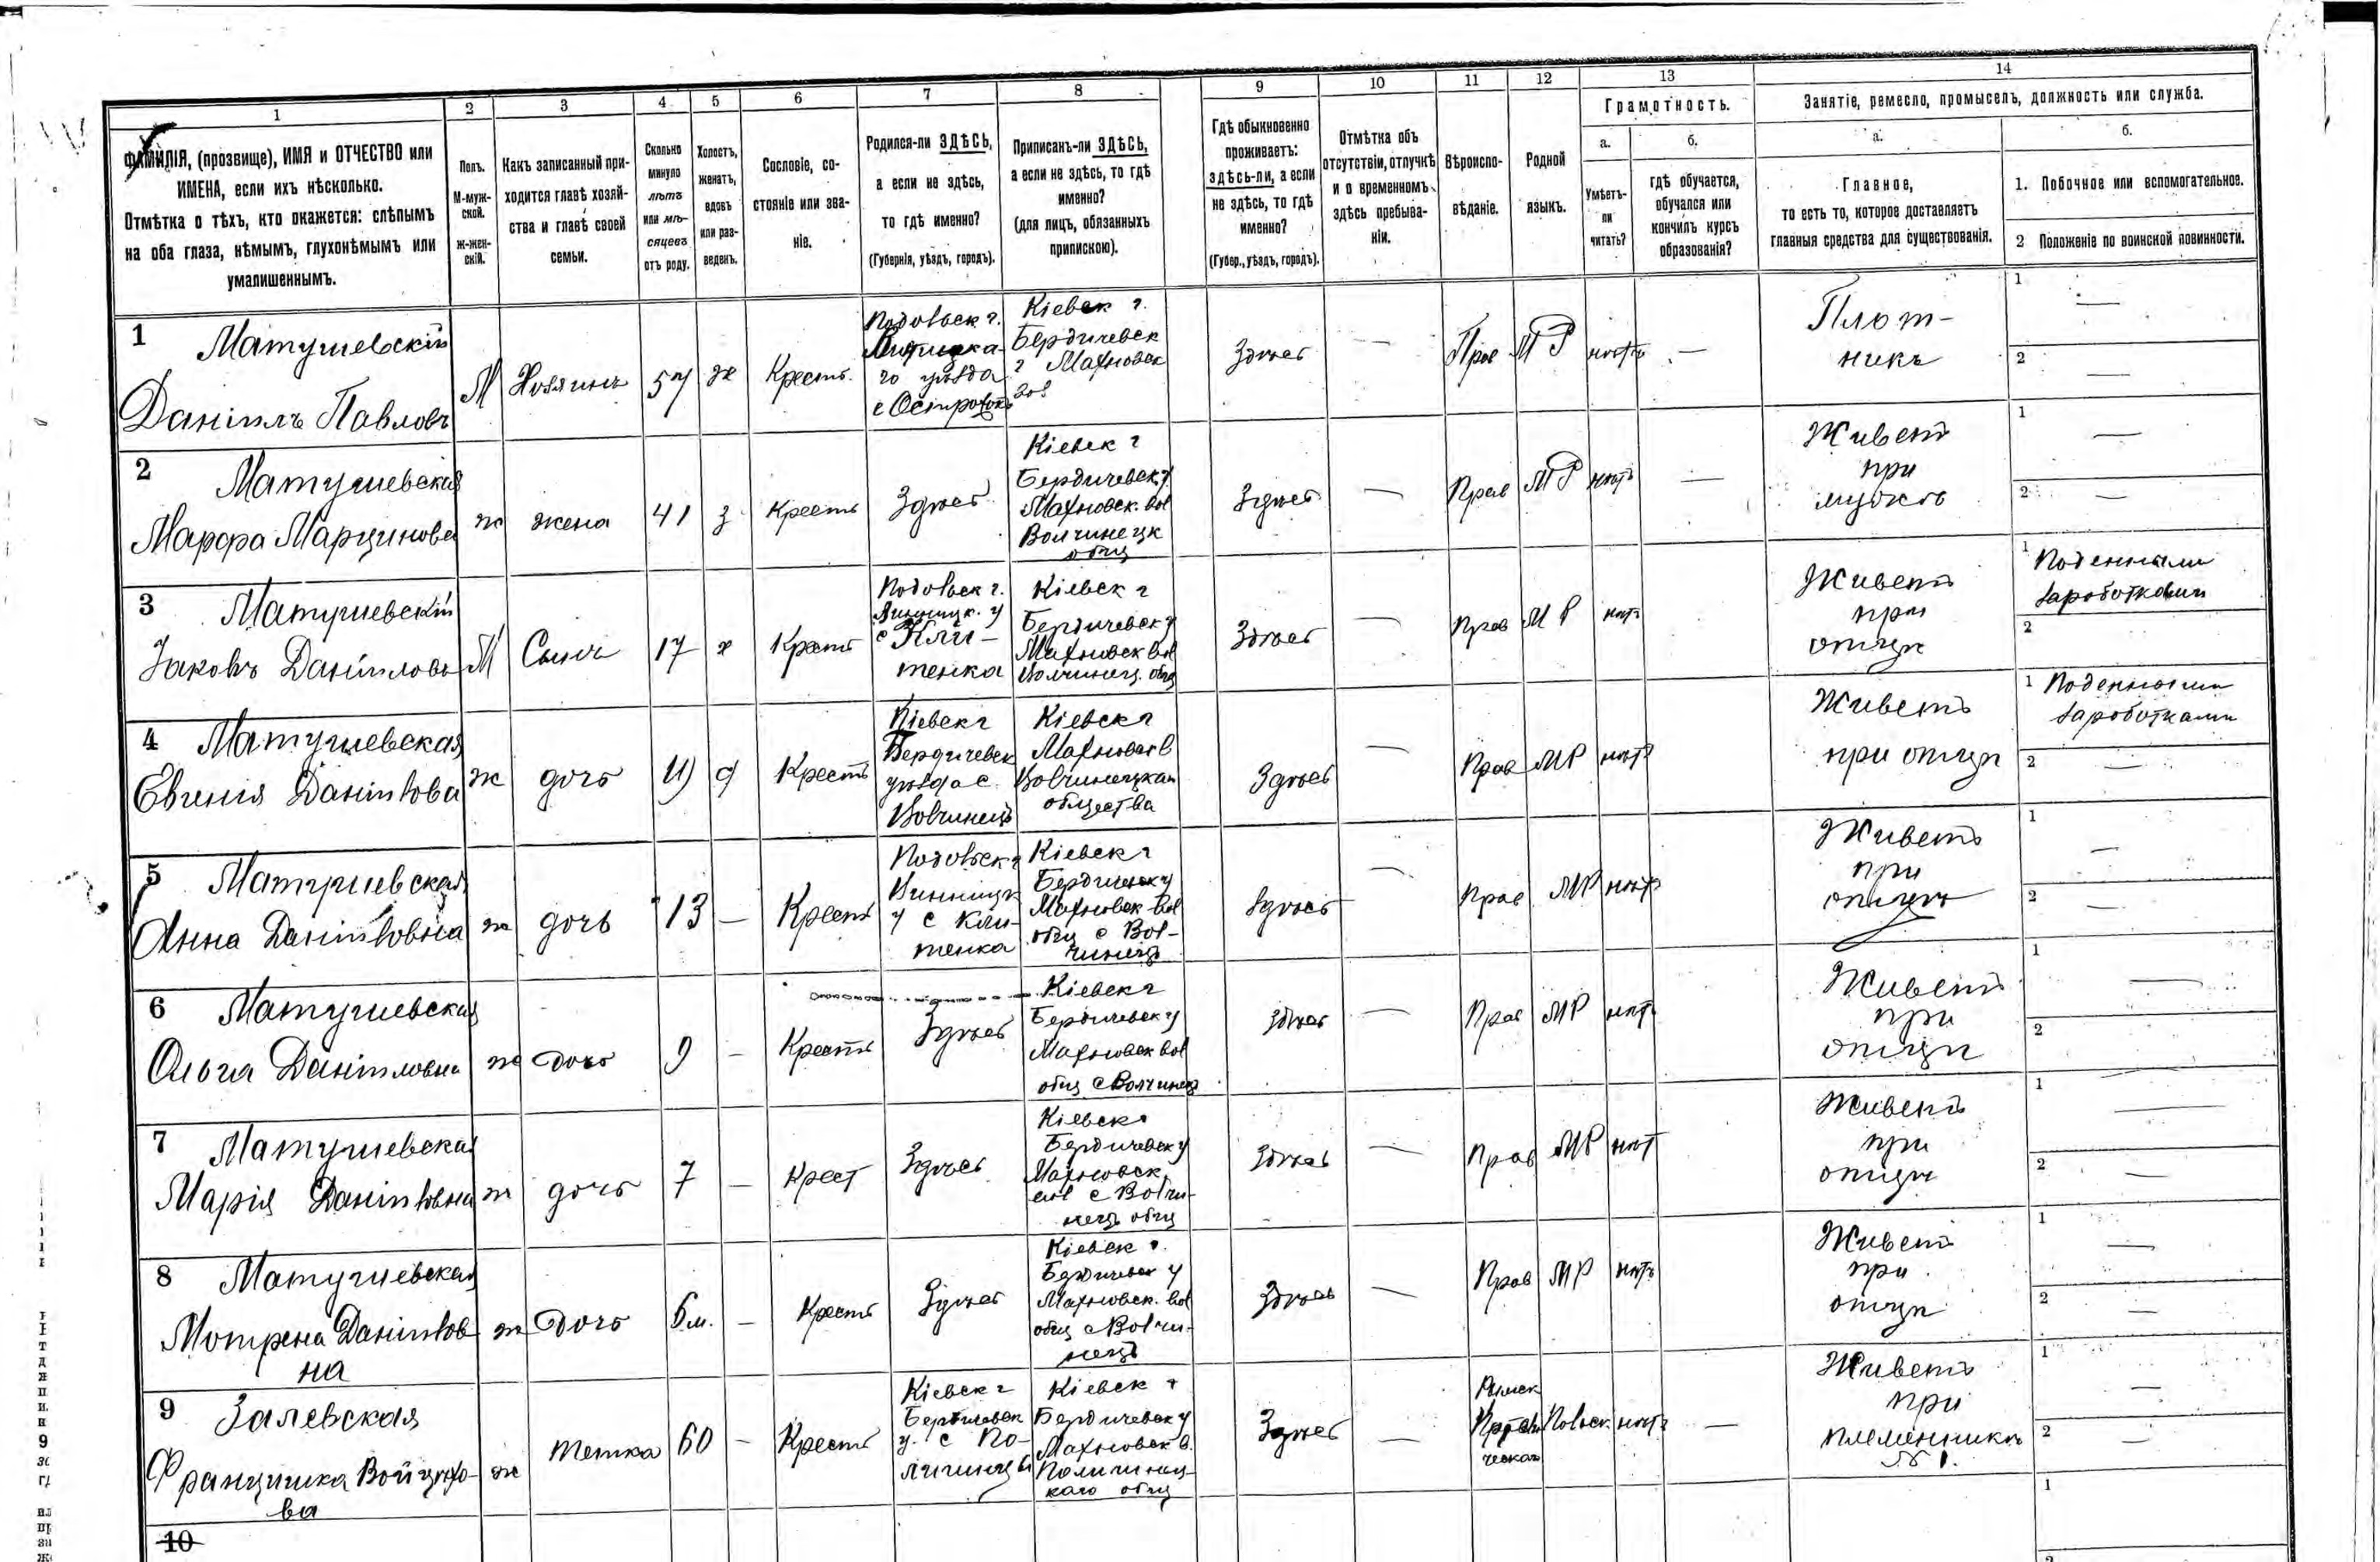 1
2
3
4
5
6
7
8
9
10
11
12
13
14
ФАМИЛІЯ, (прозвище), ИМЯ и ОТЧЕСТВО или
ИМЕНА, если ихъ нѣсколько.
Отмѣтка о тѣхъ, кто окажется: слѣпымъ
на оба глаза, нѣмымъ, глухонѣмымъ или
умалишеннымъ.
Полъ.
М-муж-
ской.
Ж-жен-
скій.
Какъ записанный при-
ходится главѣ хозяй-
ства и главѣ своей
семьи.
Сколько
минуло
лѣтъ
или мѣ-
сяцевъ
отъ роду.
Холостъ,
женатъ,
вдовъ
или раз-
веденъ.
Сословіе, со-
стояніе или зва-
ніе.
Родился-ли ЗДѢСЬ,
а если не здѣсь,
то гдѣ именно?
(Губернія, уѣздъ, городъ).
Приписанъ-ли ЗДѢСЬ,
а если не здѣсь, то гдѣ
именно?
(для лицъ, обязанныхъ
припискою).
Гдѣ обыкновенно
проживаетъ:
здѣсь-ли, а если
не здѣсь, то гдѣ
именно?
(Губер., уѣздъ, городъ).
Отмѣтка объ
отсутствіи, отлучкѣ
и о временномъ
здѣсь пребыва-
ніи.
Вѣроиспо-
вѣданіе.
Родной
языкъ.
Грамотность.
а.
Умѣетъ-
ли
читать?
б.
гдѣ обучается,
обучался или
кончилъ курсъ
образованія?
Занятіе, ремесло, промыселъ, должность или служба.
а.
Главное,
то есть то, которое доставляетъ
главныя средства для существованія.
б.
1. Побочное или вспомогательное.
2 Положеніе по воинской повинности.
1
Матушевскій
Даніилъ Павловъ
М
Хозяинъ
57
ж
Крестъ.
Подольск г.
го уѣзда
Кіевск г.
Бердичевск
г Махновск
вол
Здѣсь
—
Прав
МР
нѣтъ
—
Плот-
никъ
1
—
2
—
2
Матушевская
Марфа Марцинова
ж
жена
41
з
Крестъ
Здѣсь
Кіевск г
Бердичевск у
Махновск. вол
Волчинецк
общ
Здѣсь
—
Прав
МР
нѣтъ
—
Живетъ
при
мужѣ
1
—
2
—
3
Матушевскій
Іаковъ Даніиловъ
М
Сынъ
17
х
Крестъ
Подольск г.
Винницк. у
с Кли-
тенка
Кіевск г
Бердичевск у
Махновск вол
Волчинец. общ
Здѣсь
—
Прав
МР
нѣтъ
Живетъ
при
отцѣ
1 Поденными
заработками
2
4
Матушевская
Евгенія Даніилова
ж
дочь
д
Крестъ
Кіевск г
Бердичевск
уѣзда с.
Волчинецъ
Кіевск г
Махновск в
Волчинецкаго
общества
Здѣсь
—
Прав
МР
нѣтъ
Живетъ
при отцѣ
1 Поденными
заработками
2
—
5
Матушевская
Анна Даніиловна
ж
дочь
13
—
Крестъ
Подольск г
Винницк
у с Кли-
тенка
Кіевск г
Бердичевск у
Махновск вол
общ с Вол-
чинецъ
Здѣсь
—
Прав
МР
нѣтъ
Живетъ
при
отцѣ
1
—
2
—
6
Матушевская
Ольга Даніиловна
ж
дочь
9
—
Крестъ
Здѣсь
Кіевск г
Бердичевск у
Махновск вол
общ с Волчинец
Здѣсь
—
Прав
МР
нѣтъ
Живетъ
при
отцѣ
1
—
2
7
Матушевская
Марія Даніиловна
ж
дочь
7
—
Крест
Здѣсь
Кіевск г
Бердичевск у
Махновск
вол с Волчи-
нецъ общ
Здѣсь
—
Прав
МР
нѣт
Живетъ
при
отцѣ
1
—
2
—
8
Матушевская
Мотрена Даніилов
на
ж
дочь
6 м.
—
Крестъ
Здѣсь
Кіевск г.
Бердичевск у
Махновск. вол
общ с Волчи-
нецъ
Здѣсь
—
Прав
МР
нѣтъ
Живетъ
при
отцѣ
1
—
2
—
9
Залевская
Францишка Войцехо-
ва
ж
тетка
60
—
Крестъ
Кіевск г
Бердичевск
у. с По-
личинцы
Кіевск г
Бердичевск у
Махновск в.
Поличинец-
каго общ
Здѣсь
—
Римск
ческая
Польск
нѣтъ
—
Живетъ
при
племенникѣ
№ 1.
1
—
2
—
10
1
2